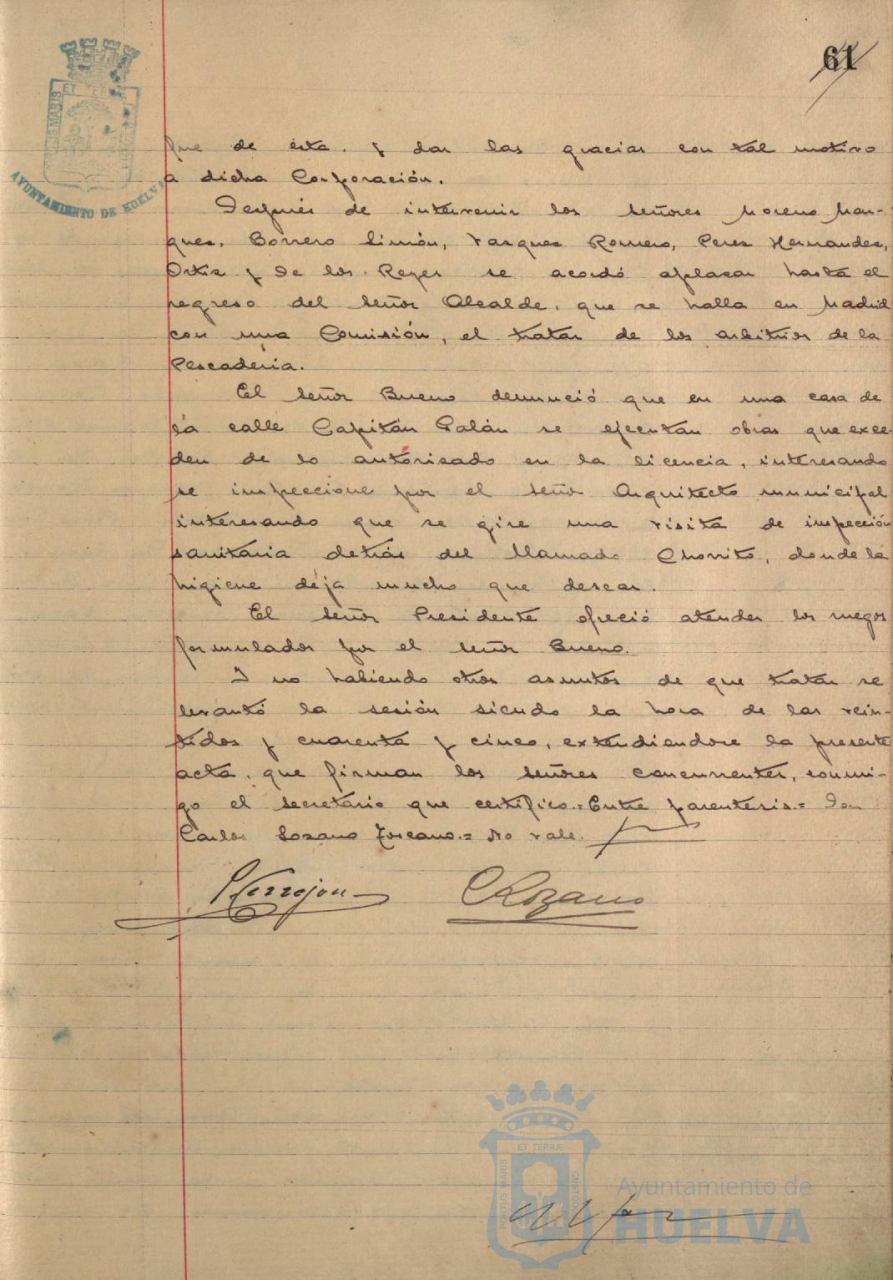 61
que de ésta. y dar las gracias con tal motivo
a dicha Corporación.
Después de intervenir los señores Moreno Mar-
ques, Borrero Limón, Vasques Romero, Peres Hernandes,
Ortis y de los Reyes se acordó aplasar hasta el
regreso del señor Alcalde, que se halla en Madrid
con una Comisión, el tratar de los arbitrios de la
Pescadería.
El señor Bueno denunció que en una casa de
la calle Capitán Galán se ejecután obras que exce-
den de lo autorisado en la licencia, interesando
se inspeccione por el señor Arquitecto municipal
interesando que se gire una visita de inspección
sanitaria detrás del llamado Chorrito, donde la
higiene deja mucho que desear.
El señor Presidente ofreció atender los ruegos
formulados por el señor Bueno.
Y no habiendo otros asuntos de que tratar se
levantó la sesión siendo la hora de las vein-
tidos y cuarenta y cinco, extendiendose la presente
acta, que firman los señores concurrentes, conmi-
go el secretario que certifico.=Entre parentesis.= Don
Carlos Lozano Toscano.= No vale.
CLozano
AYUNTAMIENTO DE HUELVA
ET TERRÆ
Ayuntamiento de
HUELVA